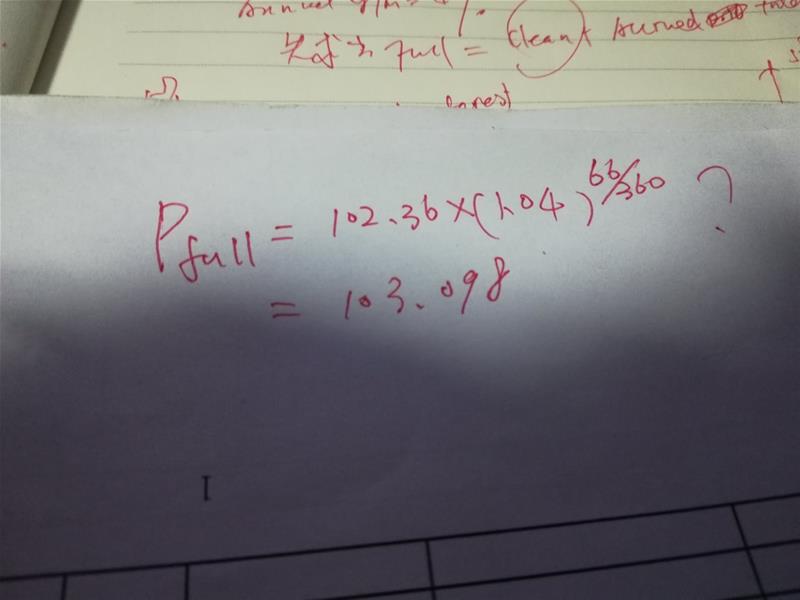 Annual
Full = Clean + Accrued
P full = 102.36 × (1.04)^66/360 ?
= 103.098